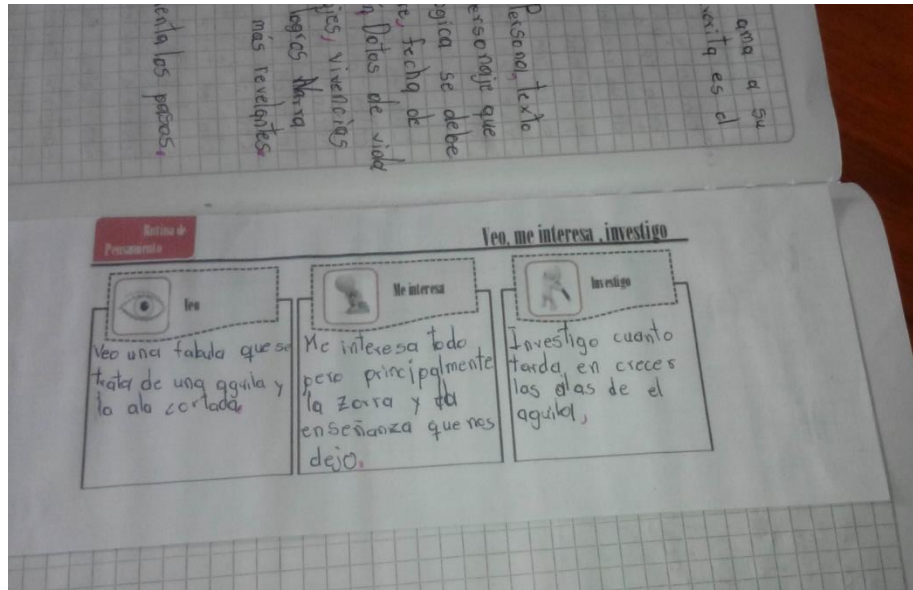 ama a su
verita es el
personal, texto
ersonaje que
ogica se debe
re, fecha de
n, Datos de vida
jes, vivencias
logros Narra
más revelantes.
enta los pasos.
Rutina de
Pensamiento
Veo, me interesa , investigo
Veo
Veo una fabula que se
trata de una aguila y
la ala cortada.
Me interesa
Me interesa todo
pero principalmente
la zorra y la
enseñanza que nos
dejo.
Investigo
Investigo cuanto
tarda, en crecer
las alas de el
aguila,